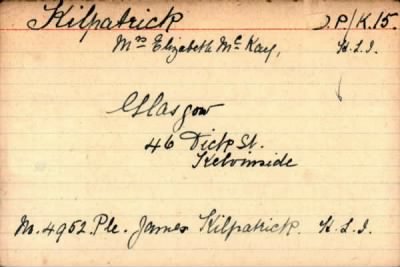 Kilpatrick J.P/K.15.
Mrs Elizabeth McKay, H.L.I.
Glasgow
46 Dick St.
Kelvinside
No. 4952. Pte. James Kilpatrick. H.L.I.